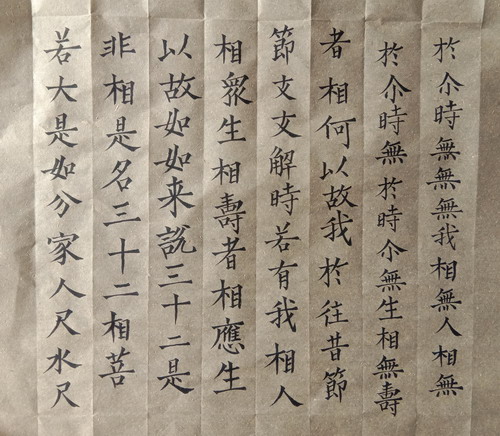 於尒時無無無我相無人相無
於尒時無於時尒無生相無壽
者相何以故我於往昔節
節支支解時若有我相人
相衆生相壽者相應生
以故如如来說三十二是
非相是名三十二相菩
若大是如分家人尺水尺